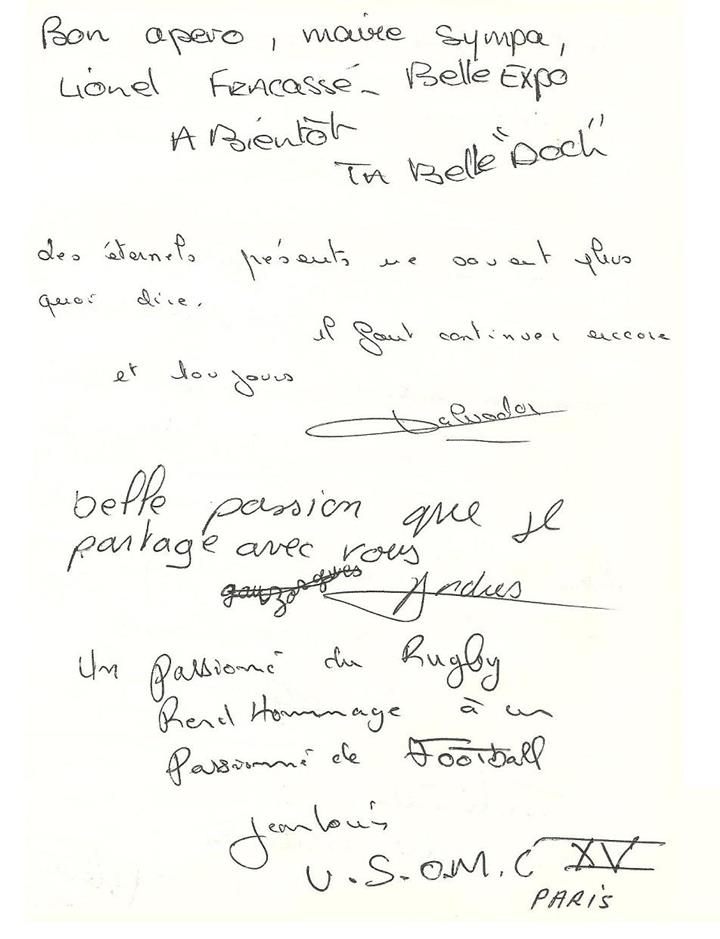 Bon apero, maire sympa,
Lionel Fracassé_ Belle Expo
A Bientôt
TA Belle "Doch"
des éternels présents ne savent plus
quoi dire.
il faut continuer encore
et toujours
Salvador
belle passion que je
partage avec vous
Andres
Un passionné du Rugby
Rend Hommage à un
Passionné de Football
Jean louis
U.S.O.M.C XV
PARIS